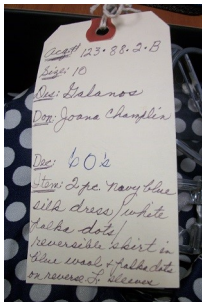 Acq# 123.88.2.B
Size: 10
Des: Galanos
Don: Joana Champlin
Dec: 60's
Item: 2 pc. navy blue
silk dress/white
polka dots/
reversible skirt in
blue wool & polka dots
on reverse L. Sleeves